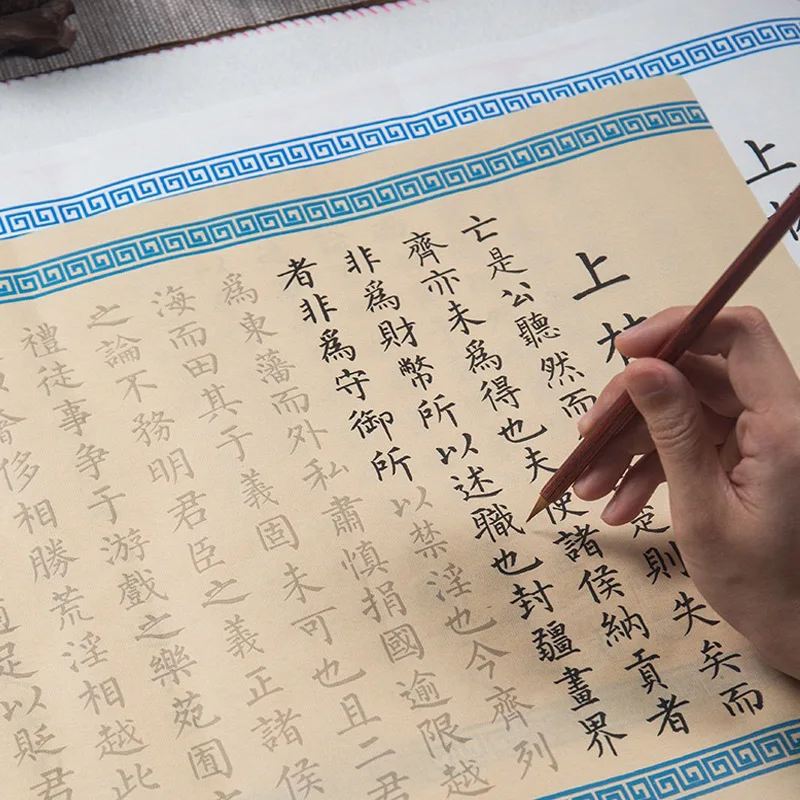 上
上
亡是公聽然而則失矣而
齊亦未爲得也夫使諸侯納貢者
非爲財幣所以述職也封疆畫界
者非爲守御所以禁淫也今齊列
爲東藩而外私肅慎捐國逾限越
海而田其于義固未可也且二君
之論不務明君臣之義正諸侯
禮徒事争于游戲之樂苑囿
侈相勝荒淫相越此
足以貶君